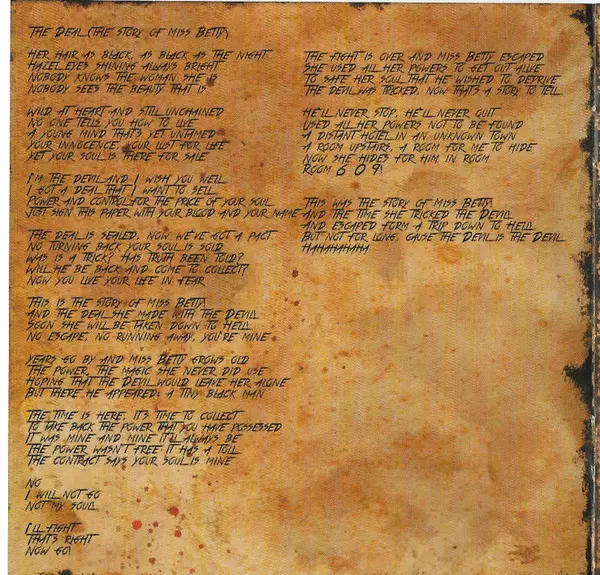 THE DEAL (THE STORY OF MISS BETTY)
HER HAIR AS BLACK, AS BLACK AS THE NIGHT
HAZEL EYES SHINING ALWAYS BRIGHT
NOBODY KNOWS THE WOMAN SHE IS
NOBODY SEES THE BEAUTY THAT IS
WILD AT HEART AND STILL UNCHAINED
NO ONE TELLS YOU HOW TO LIVE
A YOUNG MIND THAT'S YET UNTAMED
YOUR INNOCENCE, YOUR LUST FOR LIFE
YET YOUR SOUL IS THERE FOR SALE
I'M THE DEVIL AND I WISH YOU WELL
I GOT A DEAL THAT I WANT TO SELL
POWER AND CONTROL FOR THE PRICE OF YOUR SOUL
JUST SIGN THIS PAPER WITH YOUR BLOOD AND YOUR NAME
THE DEAL IS SEALED, NOW WE'VE GOT A PACT
NO TURNING BACK YOUR SOUL IS SOLD
WAS IS A TRICK? HAS TRUTH BEEN TOLD?
WILL HE BE BACK AND COME TO COLLECT?
NOW YOU LIVE YOUR LIFE IN FEAR
THIS IS THE STORY OF MISS BETTY
AND THE DEAL SHE MADE WITH THE DEVIL
SOON SHE WILL BE TAKEN DOWN TO HELL
NO ESCAPE, NO RUNNING AWAY, YOU'RE MINE
YEARS GO BY AND MISS BETTY GROWS OLD
THE POWER, THE MAGIC SHE NEVER DID USE
HOPING THAT THE DEVIL WOULD LEAVE HER ALONE
BUT THERE HE APPEARED: A TINY BLACK MAN
THE TIME IS HERE, IT'S TIME TO COLLECT
TO TAKE BACK THE POWER THAT YOU HAVE POSSESSED
IT WAS MINE AND MINE IT'LL ALWAYS BE
THE POWER WASN'T FREE IT HAS A TOLL
THE CONTRACT SAYS YOUR SOUL IS MINE
NO
I WILL NOT GO
NOT MY SOUL
I'LL FIGHT
THAT'S RIGHT
NOW GO!
THE FIGHT IS OVER AND MISS BETTY ESCAPED
SHE USED ALL HER POWERS TO GET OUT ALIVE
TO SAFE HER SOUL THAT HE WISHED TO DEPRIVE
THE DEVIL WAS TRICKED. NOW THAT'S A STORY TO TELL
HE'LL NEVER STOP, HE'LL NEVER QUIT
USED ALL HER POWERS NOT TO BE FOUND
A DISTANT HOTEL IN AN UNKNOWN TOWN
A ROOM UPSTAIRS, A ROOM FOR ME TO HIDE
NOW SHE HIDES FOR HIM IN ROOM
ROOM 6 0 9!
THIS WAS THE STORY OF MISS BETTY
AND THE TIME SHE TRICKED THE DEVIL
AND ESCAPED FORM A TRIP DOWN TO HELL
BUT NOT FOR LONG, CAUSE THE DEVIL IS THE DEVIL
HAHAHAHAHA